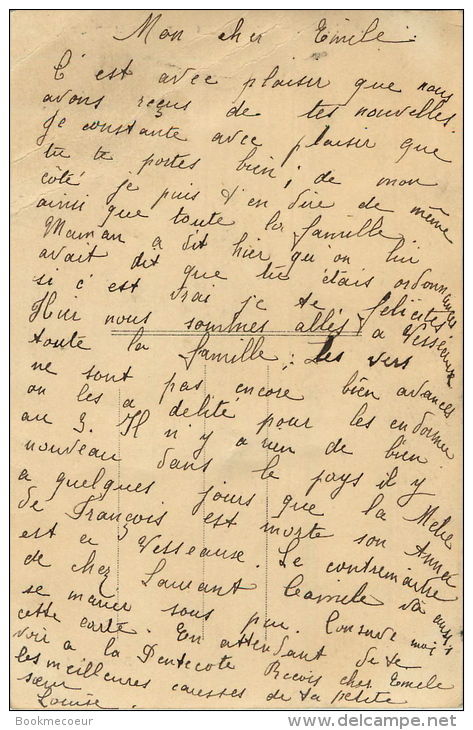 Mon cher Emile :
C'est avec plaisir que nous
avons reçus de tes nouvelles.
Je constante avec plaisir que
tu te portes bien ; de mon
côté je puis d'en dire de même
ainsi que toute la famille.
Maman a dit hier qu'on lui
avait dit que tu étais ordonnance
si c'est vrai je te félicites
Hier nous sommes allés a Vesseaux
toute la famille : Les vers
ne sont pas encore bien avancés
on les a délité pour les endormir
au 3. Il n'y a rien de bien
nouveau dans le pays il y
a quelques jours que la Mère
de François est morte son Anna
est a Vesseaux. Le contremaitre
de chez Laurant Camile va aussi
se marier sous peu. Conserve moi
cette carte. En attendant de te
voir a la Pentecote Recois cher Emile
les meilleures caresses de ta petite
sœur
Louise.
Bookmecoeur